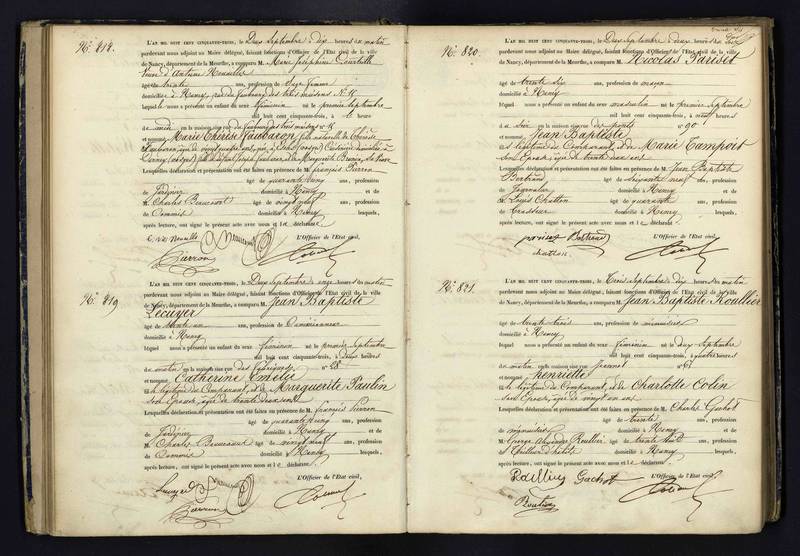 No. 818.
L'AN MIL HUIT CENT CINQUANTE-TROIS, le Deux Septembre à dix heures du matin
pardevant nous adjoint au Maire délégué, faisant fonctions d'Officier de l'Etat civil de la ville
de Nancy, département de la Meurthe, a comparu M. Marie Joséphine
Veuve d'Antoine
âgé de trente ans, profession de Sage femme
domiciliée à Nancy, rue du faubourg des trois maisons No. 18
laquelle nous a présenté un enfant du sexe féminin né le premier septembre
mil huit cent cinquante-trois, à
de midi en la maison rue du faubourg des trois maisons no. 18
et nommé Marie Thérèse fille naturelle de
Lesquelles déclaration et présentation ont été faites en présence de M. françois Pierron
âgé de quarante cinq ans, profession
de Jardinier domicilié à Nancy et de
M. Charles Beaucourt âgé de vingt neuf ans, profession
de Commis domicilié à Nancy lesquels,
après lecture, ont signé le présent acte avec nous et le déclarant
L'Officier de l'Etat civil,
Pierron
No. 819
L'AN MIL HUIT CENT CINQUANTE-TROIS, le Deux Septembre à onze heures du matin
pardevant nous adjoint au Maire délégué, faisant fonctions d'Officier de l'Etat civil de la ville
de Nancy, département de la Meurthe, a comparu M. Jean Baptiste
Lecuyer
âgé de trente un ans, profession de Commissionnaire
domicilié à Nancy
lequel nous a présenté un enfant du sexe féminin né le premier septembre
mil huit cent cinquante-trois, à deux heures
du matin en la maison rue des fabriques no. 28
et nommé Catherine Emelie
fille légitime du Comparant, et de Marguerite Paulin
son Epouse, âgée de trente deux ans
Lesquelles déclaration et présentation ont été faites en présence de M. françois Pierron
âgé de quarante cinq ans, profession
de Jardinier domicilié à Nancy et de
M. Charles Beaucourt âgé de vingt neuf ans, profession
de Commis domicilié à Nancy lesquels,
après lecture, ont signé le présent acte avec nous et le déclarant
L'Officier de l'Etat civil,
Lecuyer
Pierron
No. 820.
L'AN MIL HUIT CENT CINQUANTE-TROIS, le Deux Septembre à deux heures du soir
pardevant nous adjoint au Maire délégué, faisant fonctions d'Officier de l'Etat civil de la ville
de Nancy, département de la Meurthe, a comparu M. Nicolas Pariset
âgé de trente six ans, profession de maçon
domicilié à Nancy
lequel nous a présenté un enfant du sexe masculin né le premier septembre
mil huit cent cinquante-trois, à neuf heures
du soir en la maison rue des ponts no. 90
et nommé Jean Baptiste
fils légitime du Comparant, et de Marie Tempoit
son Epouse, âgée de trente deux ans
Lesquelles déclaration et présentation ont été faites en présence de M. Jean Baptiste
Bertrand âgé de soixante neuf ans, profession
de Journalier domicilié à Nancy et de
M. Louis Chatton âgé de quarante ans, profession
de domicilié à Nancy lesquels,
après lecture, ont signé le présent acte avec nous et le déclarant
pariset Bertrand L'Officier de l'Etat civil,
chatton
No. 821.
L'AN MIL HUIT CENT CINQUANTE-TROIS, le Trois Septembre à dix heures du matin
pardevant nous adjoint au Maire délégué, faisant fonctions d'Officier de l'Etat civil de la ville
de Nancy, département de la Meurthe, a comparu M. Jean Baptiste Roullier
âgé de trente trois ans, profession de menuisier
domicilié à Nancy
lequel nous a présenté un enfant du sexe féminin né le deux Septembre
mil huit cent cinquante-trois, à quatre heures
du matin en la maison rue no. 61
et nommé Henriette
fille légitime du Comparant, et de Charlotte Colin
son Epouse, âgée de vingt un ans
Lesquelles déclaration et présentation ont été faites en présence de M. Charles Gachot
âgé de trente ans, profession
de menuisier domicilié à Nancy et de
M. George Alexandre Roullier âgé de trente huit ans, profession
de Tailleur d'habits domicilié à Nancy lesquels,
après lecture, ont signé le présent acte avec nous et le déclarant
L'Officier de l'Etat civil,
Roullier Gachot
Roullier